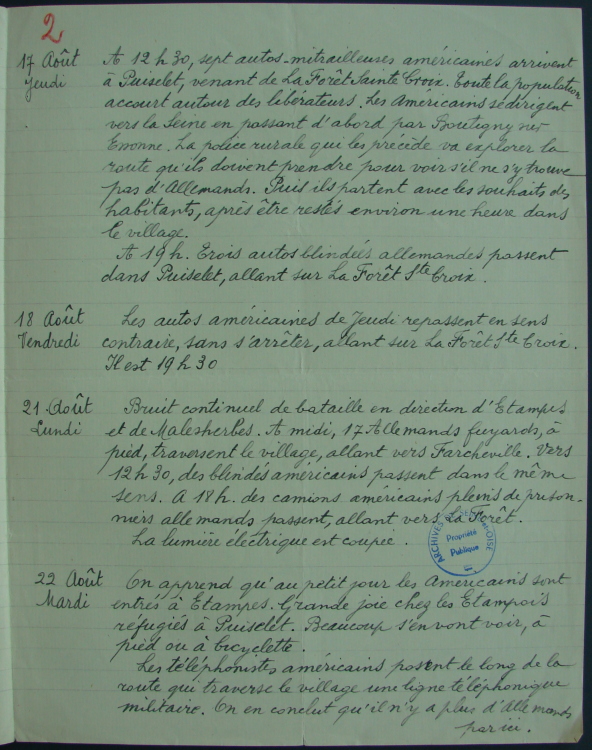 2
17 Août
Jeudi
A 12 h 30, sept autos-mitrailleuses américaines arrivent
à Puiselet, venant de La Forêt Sainte Croix. Toute la population
accourt autour des libérateurs. Les Américains se dirigent
vers la Seine en passant d'abord par Boutigny sur
Essonne. La police rurale qui les précède va explorer la
route qu'ils doivent prendre pour voir s'il ne s'y trouve
pas d'Allemands. Puis ils partent avec les souhaits des
habitants, après être restés environ une heure dans
le village.
A 19 h. Trois autos blindées allemandes passent
dans Puiselet, allant sur La Forêt Ste Croix.
18 Août
Vendredi
Les autos américaines de Jeudi repassent en sens
contraire, sans s'arrêter, allant sur La Forêt Ste Croix.
Il est 19 h 30
21 Août
Lundi
Bruit continuel de bataille en direction d'Etampes
et de Malesherbes. A midi, 17 Allemands fuyards, à
pied, traversent le village, allant vers Farcheville. Vers
12 h 30, des blindés américains passent dans le même
sens. A 18 h. des camions américains pleins de prison-
niers allemands passent, allant vers La Forêt.
La lumière électrique est coupée.
ARCHIVES SEINE-ET-OISE
Propriété
Publique
22 Août
Mardi
On apprend qu'au petit jour les Américains sont
entrés à Etampes. Grande joie chez les Etampois
réfugiés à Puiselet. Beaucoup s'en vont voir, à
pied ou à bicyclette.
Les téléphonistes américains posent le long de la
route qui traverse le village une ligne téléphonique
militaire. On en conclut qu'il n'y a plus d'Allemands
par ici.